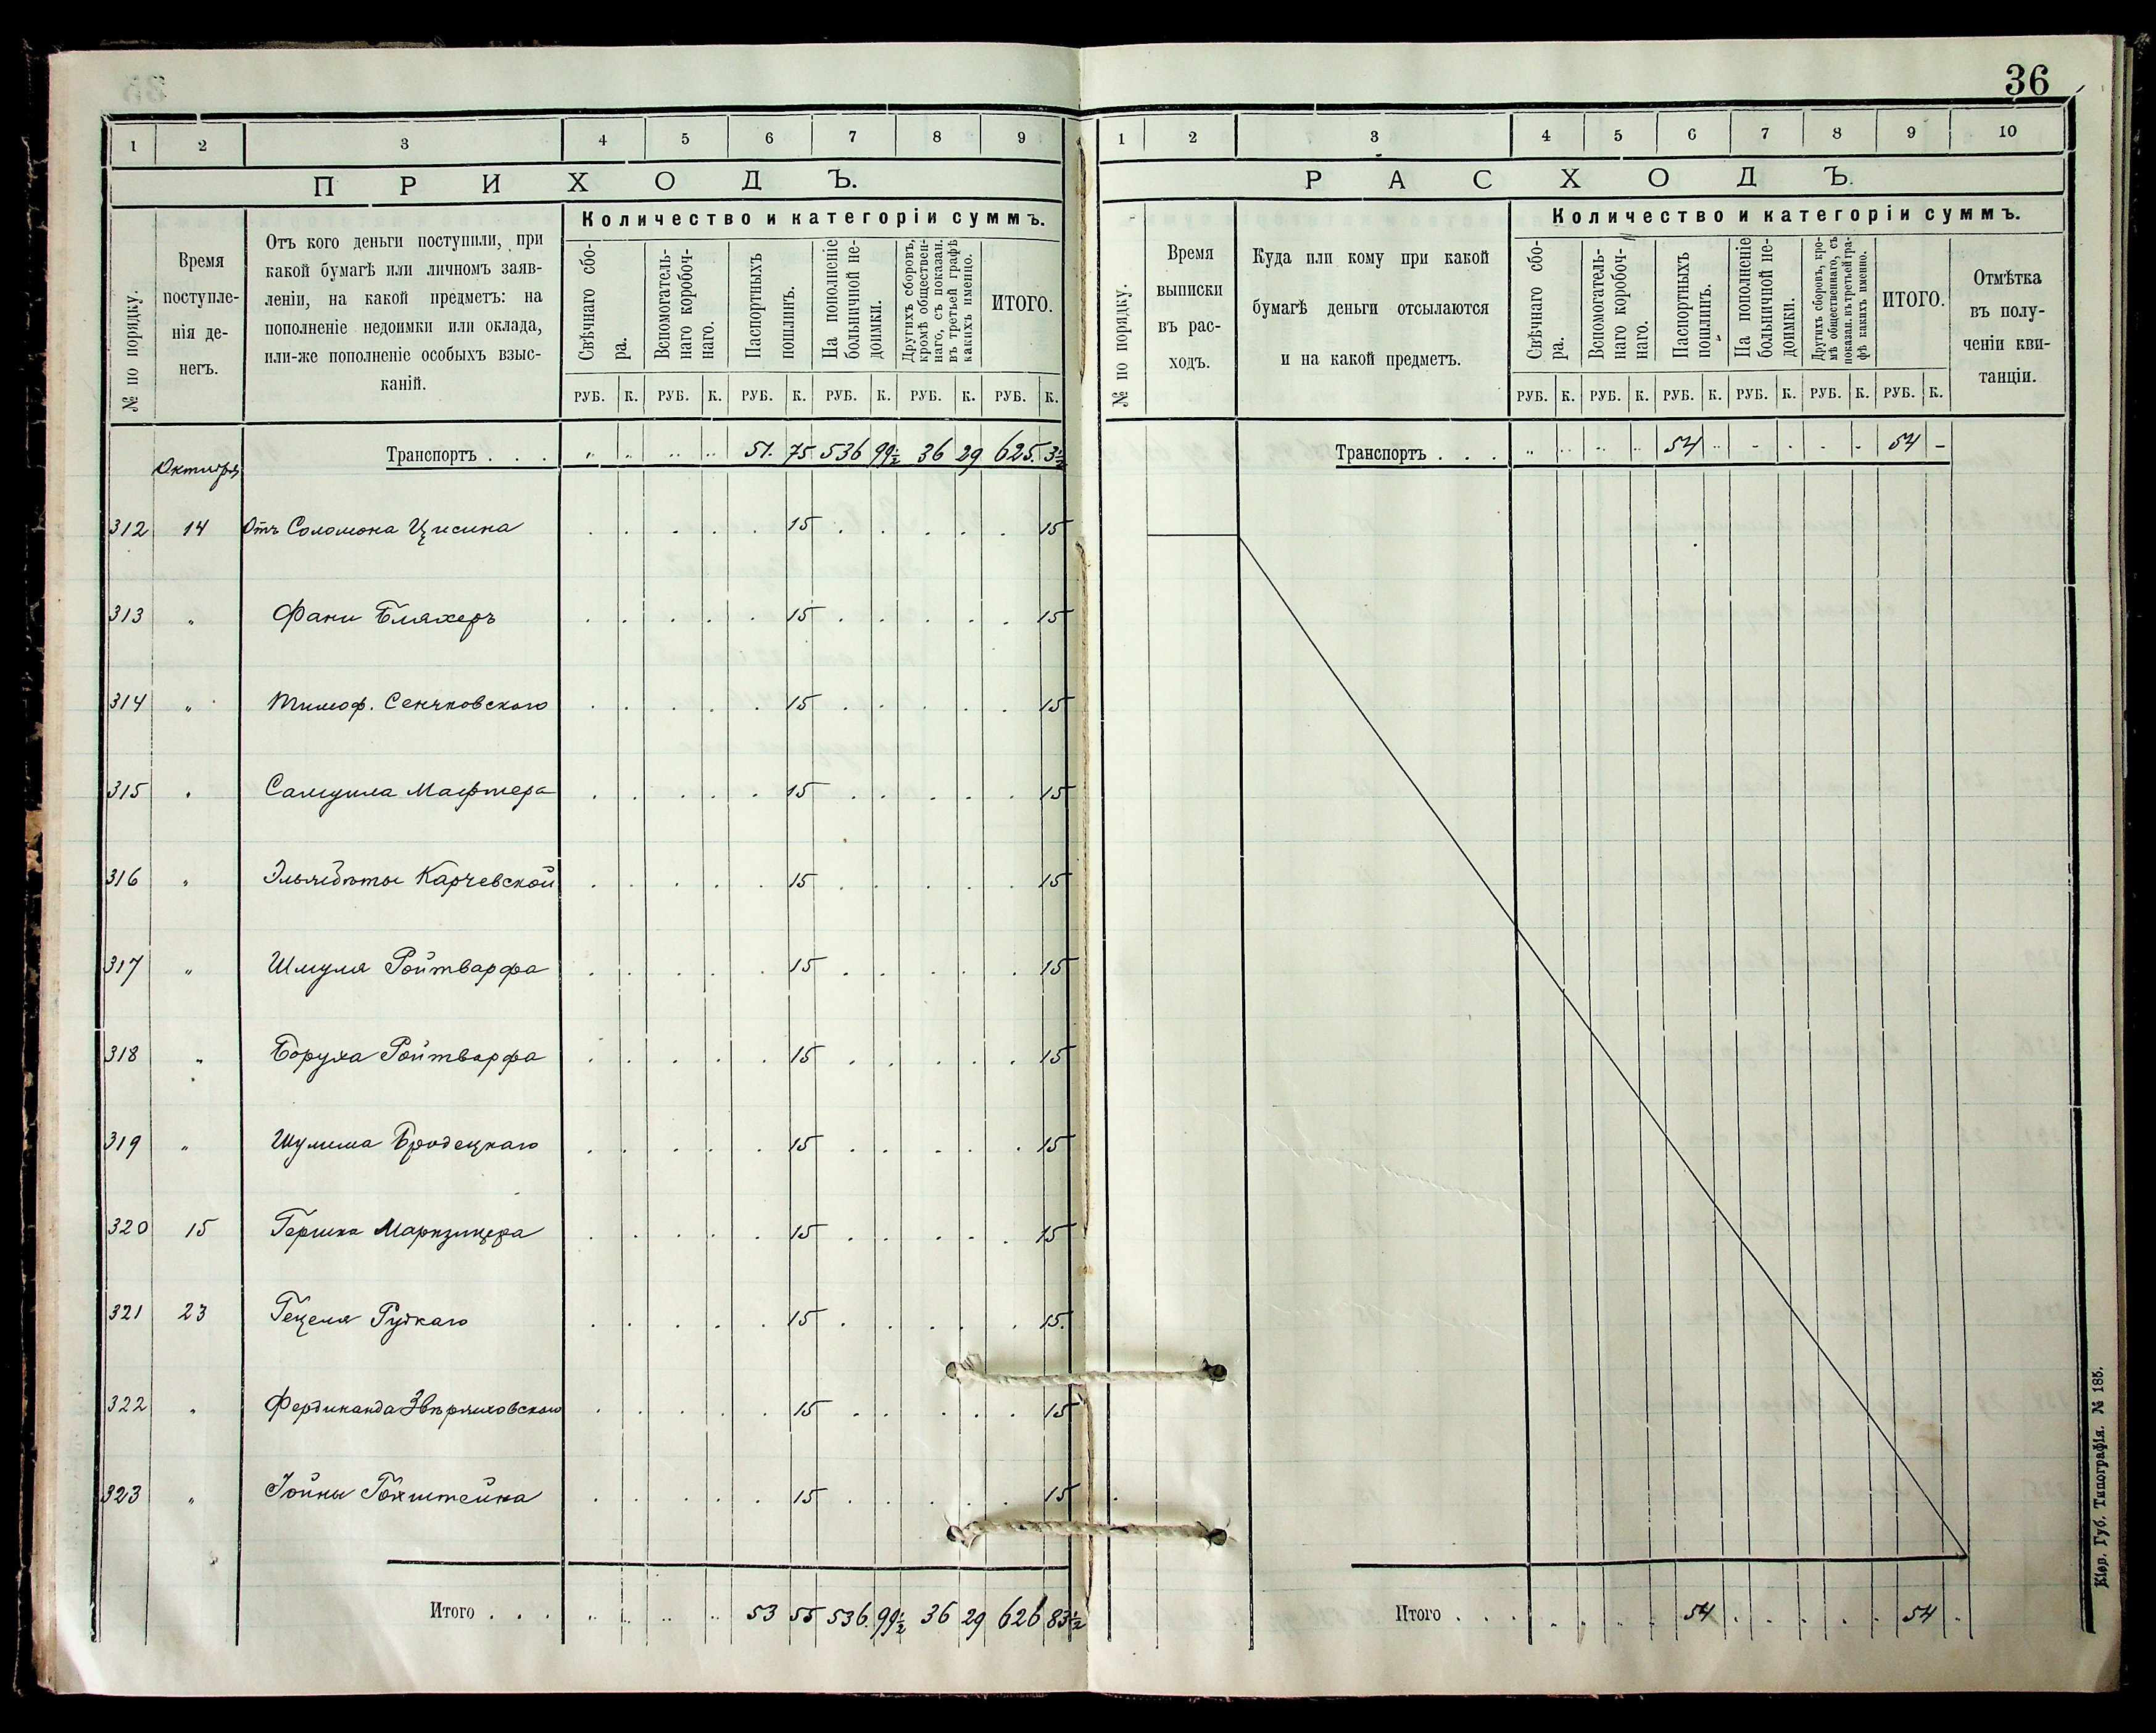 36
1 2 3 4 5 6 7 8 9
ПРИХОДЪ.
№ по порядку.
Время
поступле-
нія де-
негъ.
Отъ кого деньги поступили, при
какой бумагѣ или личномъ заяв-
леніи, на какой предметъ: на
пополненіе недоимки или оклада,
или-же пополненіе особыхъ взыс-
каній.
Количество и категоріи суммъ.
Свѣчнаго сбо-
ра.
Вспомогатель-
наго коробоч-
наго.
Паспортныхъ
пошлинъ.
На пополненіе
больничной не-
доимки.
Другихъ сборовъ,
кромѣ обществен-
наго, съ показан.
въ третьей графѣ
какихъ именно.
ИТОГО.
РУБ. К. РУБ. К. РУБ. К. РУБ. К. РУБ. К. РУБ. К.
Октября Транспортъ . . . „ „ „ „ 51. 75 536 99½ 36 29 625. 3½
312 14 Отъ Соломона Цисина . . . . . 15 . . . . . 15
313 „ Фани Бляхеръ . . . . . 15 . . . . . 15
314 „ Тимоф. Сенчковского . . . . . 15 . . . . . 15
315 „ Самуила Мафтера . . . . . 15 . . . . . 15
316 „ Эльжбѣты Карчевской . . . . . 15 . . . . . 15
317 „ Шмуля Ройтварфа . . . . . 15 . . . . . 15
318 „ Боруха Ройтварфа . . . . . 15 . . . . . 15
319 „ Шулима Бродецкаго . . . . . 15 . . . . . 15
320 15 Гершка . . . . . 15 . . . . . 15
321 23 Гецеля Рудкаго . . . . . 15 . . . . . 15.
322 „ Фердинанда Звѣрлиховскаго . . . . . 15 . . . . . 15
323 „ Іойны . . . . . 15 . . . . . 15
Итого . . . „ „ „ „ 53 55 536 99½ 36 29 626 83½
1 2 3 4 5 6 7 8 9 10
РАСХОДЪ.
№ по порядку.
Время
выписки
въ рас-
ходъ.
Куда или кому при какой
бумагѣ деньги отсылаются
и на какой предметъ.
Количество и категоріи суммъ.
Свѣчнаго сбо-
ра.
Вспомогатель-
наго коробоч-
наго.
Паспортныхъ
пошлинъ.
На пополненіе
больничной не-
доимки.
Другихъ сборовъ, кро-
мѣ общественнаго, съ
показан. въ третьей гра-
фѣ какихъ именно.
ИТОГО.
Отмѣтка
въ полу-
ченіи кви-
танціи.
РУБ. К. РУБ. К. РУБ. К. РУБ. К. РУБ. К. РУБ. К.
Транспортъ . . . „ „ „ „ 54 „ - . . . 54 -
Итого . . . . . . . 54 . . . . . 54 .
Кіев. Губ. Типографія. № 185.